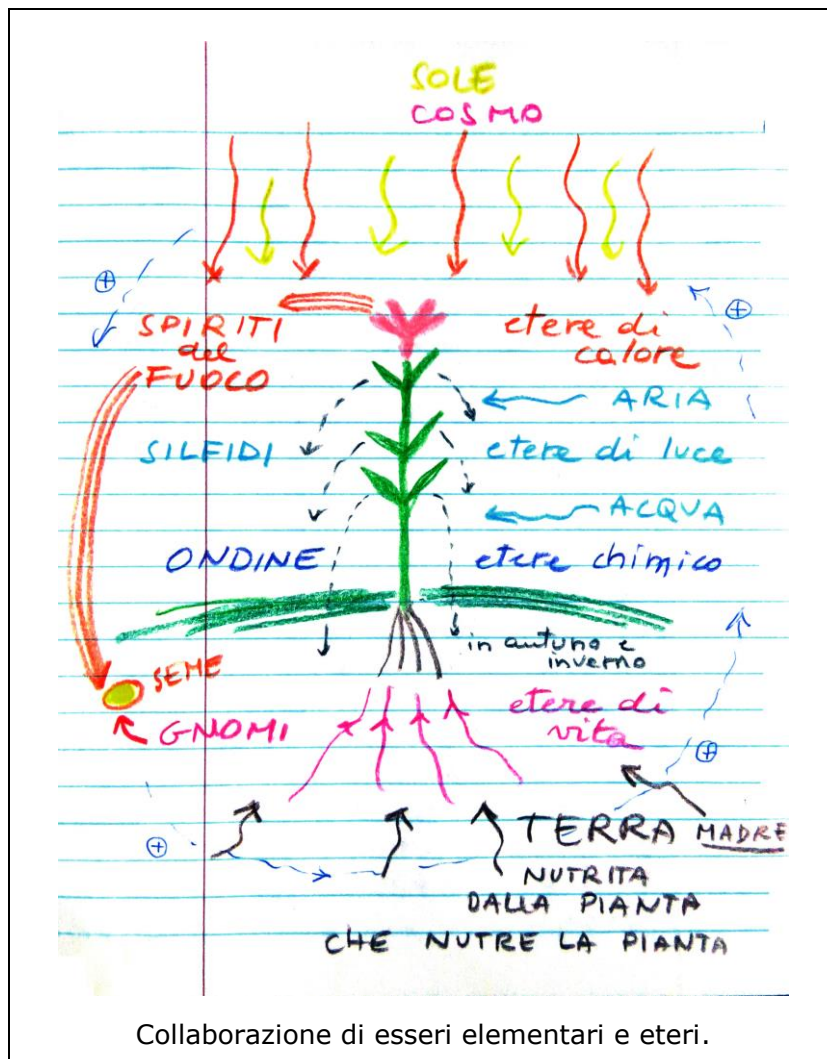 SOLE
COSMO
⊕
⊕
SPIRITI
del
FUOCO
etere di
calore
ARIA
SILFIDI
etere di luce
ACQUA
ONDINE
etere chimico
in autuno e
inverno
SEME
GNOMI
etere di
vita
⊕
⊕
TERRA MADRE
NUTRITA
DALLA PIANTA
CHE NUTRE LA PIANTA
Collaborazione di esseri elementari e eteri.